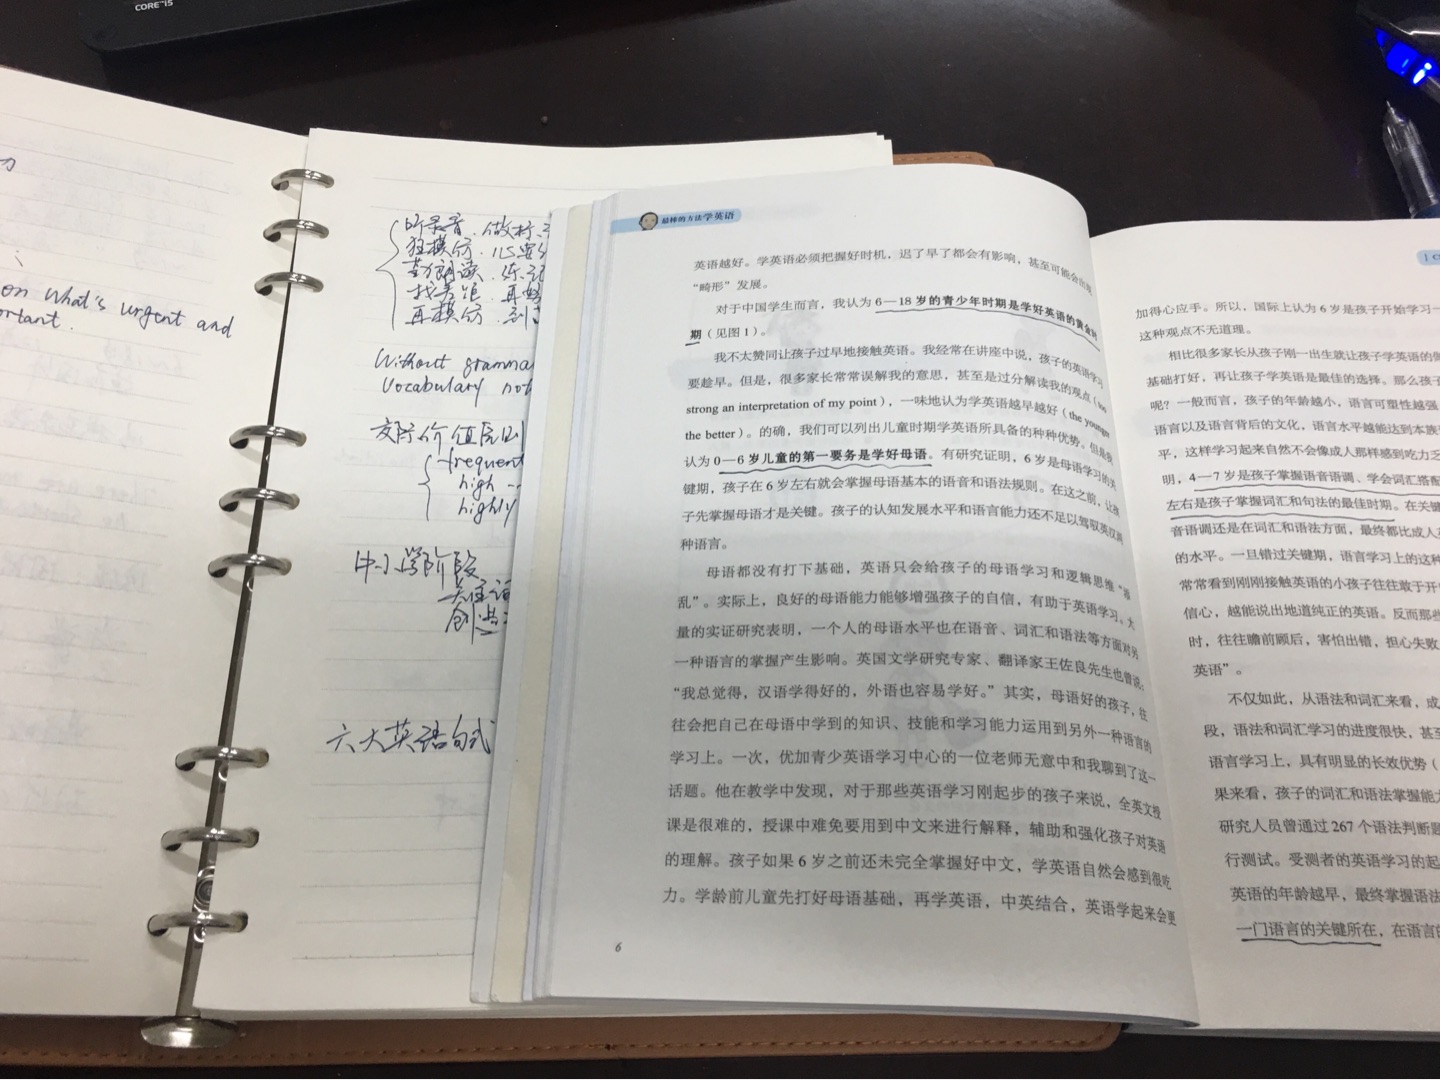 CORE i5
力
on what's urgent and
ortant.
听录音.做标
狂模仿.
勤朗读.练
找差距.再
再模仿.到
Without gramma
Vocabulary not
交际价值原则
frequent
high
highly
中小学阶段
创造
六大英语句式
最棒的方法学英语
英语越好。学英语必须把握好时机，迟了早了都会有影响，甚至可能会出现
“畸形”发展。
对于中国学生而言，我认为6—18岁的青少年时期是学好英语的黄金时
期（见图1）。
我不太赞同让孩子过早地接触英语。我经常在讲座中说，孩子的英语学习
要趁早。但是，很多家长常常误解我的意思，甚至是过分解读我的观点（too
strong an interpretation of my point），一味地认为学英语越早越好（the younger
the better）。的确，我们可以列出儿童时期学英语所具备的种种优势。但是我
认为0—6岁儿童的第一要务是学好母语。有研究证明，6岁是母语学习的关
键期，孩子在6岁左右就会掌握母语基本的语音和语法规则。在这之前，让孩
子先掌握母语才是关键。孩子的认知发展水平和语言能力还不足以驾驭英汉两
种语言。
母语都没有打下基础，英语只会给孩子的母语学习和逻辑思维“添
乱”。实际上，良好的母语能力能够增强孩子的自信，有助于英语学习。大
量的实证研究表明，一个人的母语水平也在语音、词汇和语法等方面对另
一种语言的掌握产生影响。英国文学研究专家、翻译家王佐良先生也曾说：
“我总觉得，汉语学得好的，外语也容易学好。”其实，母语好的孩子，往
往会把自己在母语中学到的知识、技能和学习能力运用到另外一种语言的
学习上。一次，优加青少英语学习中心的一位老师无意中和我聊到了这一
话题。他在教学中发现，对于那些英语学习刚起步的孩子来说，全英文授
课是很难的，授课中难免要用到中文来进行解释，辅助和强化孩子对英语
的理解。孩子如果6岁之前还未完全掌握好中文，学英语自然会感到很吃
力。学龄前儿童先打好母语基础，再学英语，中英结合，英语学起来会更
6
加得心应手。所以，国际上认为6岁是孩子开始学习一
这种观点不无道理。
相比很多家长从孩子刚一出生就让孩子学英语的做
基础打好，再让孩子学英语是最佳的选择。那么孩子
呢？一般而言，孩子的年龄越小，语言可塑性越强
语言以及语言背后的文化，语言水平越能达到本族
平，这样学习起来自然不会像成人那样感到吃力乏
明，4—7岁是孩子掌握语音语调、学会词汇搭配
左右是孩子掌握词汇和句法的最佳时期。在关键
音语调还是在词汇和语法方面，最终都比成人
的水平。一旦错过关键期，语言学习上的这种
常常看到刚刚接触英语的小孩子往往敢于开
信心，越能说出地道纯正的英语。反而那些
时，往往瞻前顾后，害怕出错，担心失败
英语”。
不仅如此，从语法和词汇来看，成
段，语法和词汇学习的进度很快，甚至
语言学习上，具有明显的长效优势（
果来看，孩子的词汇和语法掌握能力
研究人员曾通过267个语法判断题
行测试。受测者的英语学习的起
英语的年龄越早，最终掌握语法
一门语言的关键所在，在语言的